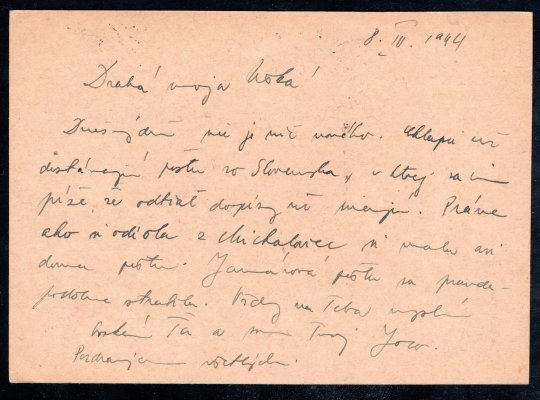 8. III. 1944
Drahá moja
Dnešný deň nie je nič nového. Chlapci už
dostávajú poštu zo Slovenska, v ktorej sa im
píše, že odtiaľ dopisy už
ako si odišla z Michaloviec si mala asi
doma poštu. Januárová pošta sa pravde-
podobne stratila. Vždy na Teba myslím
Ťa a som Tvoj
Pozdravujem všetkých.